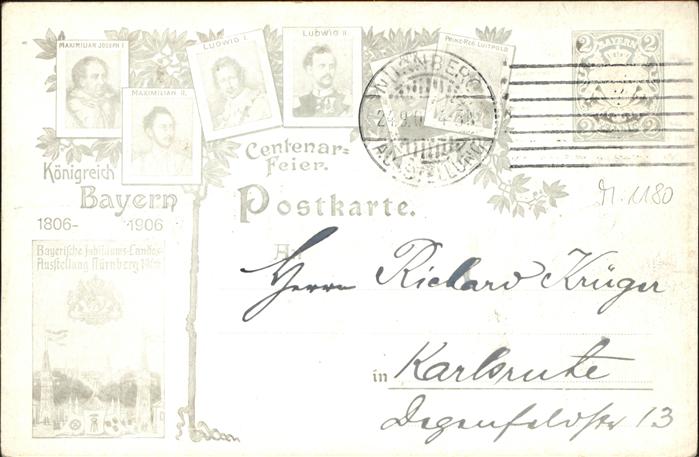 MAXIMILIAN JOSEPH I.
LUDWIG I.
LUDWIG II.
PRINZ-REG. LUITPOLD
MAXIMILIAN II.
BAYERN
2 2
NÜRNBERG
AUSSTELLUNG
Königreich
Bayern
1806-1906
Centenar=
Feier.
Postkarte.
M. 1180
Bayerische Jubiläums-Landes-
Ausstellung Nürnberg 1906
An
Herrn Richard Krüger
in Karlsruhe
Degenfeldstr 13